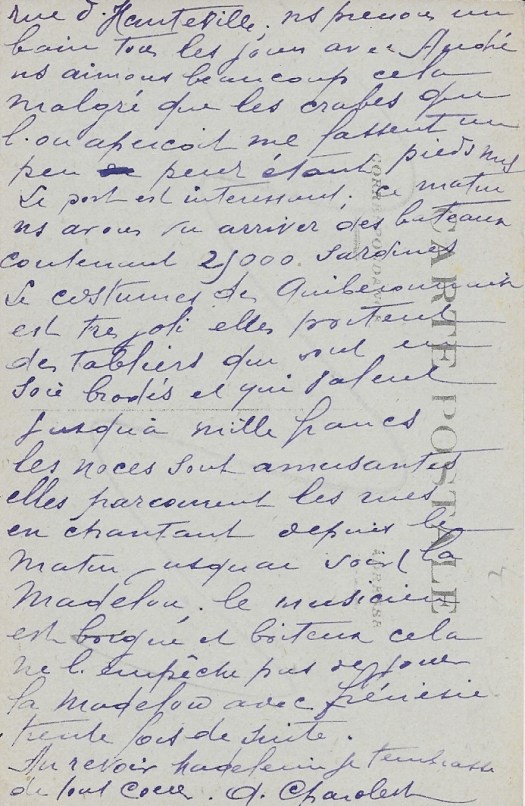 rue d'Hauteville. ns prenons un
bain tous les jours avec André
ns aimons beaucoup cela
malgré que les crabes que
l'on aperçoit me fassent un
peu peur étant pieds nus
Le port est interessant, ce matin
ns avons vu arriver des bateaux
contenant 25000 sardines
Le costumes des
est tres joli elles portent
des tabliers qui sont en
soie brodés et qui valent
jusqu'à mille francs
les noces sont amusantes
elles parcourent les rues
en chantant depuis le
matin jusqu'au soir la
Madelon. le musicien
est borgne et boiteux cela
ne l'empêche pas de jouer
la Madelon avec frénésie
trente fois de suite.
Au revoir Madeleine je t'embrasse
de tout coeur. A.
CARTE POSTALE
CORRESPONDANCE
ADRESSE